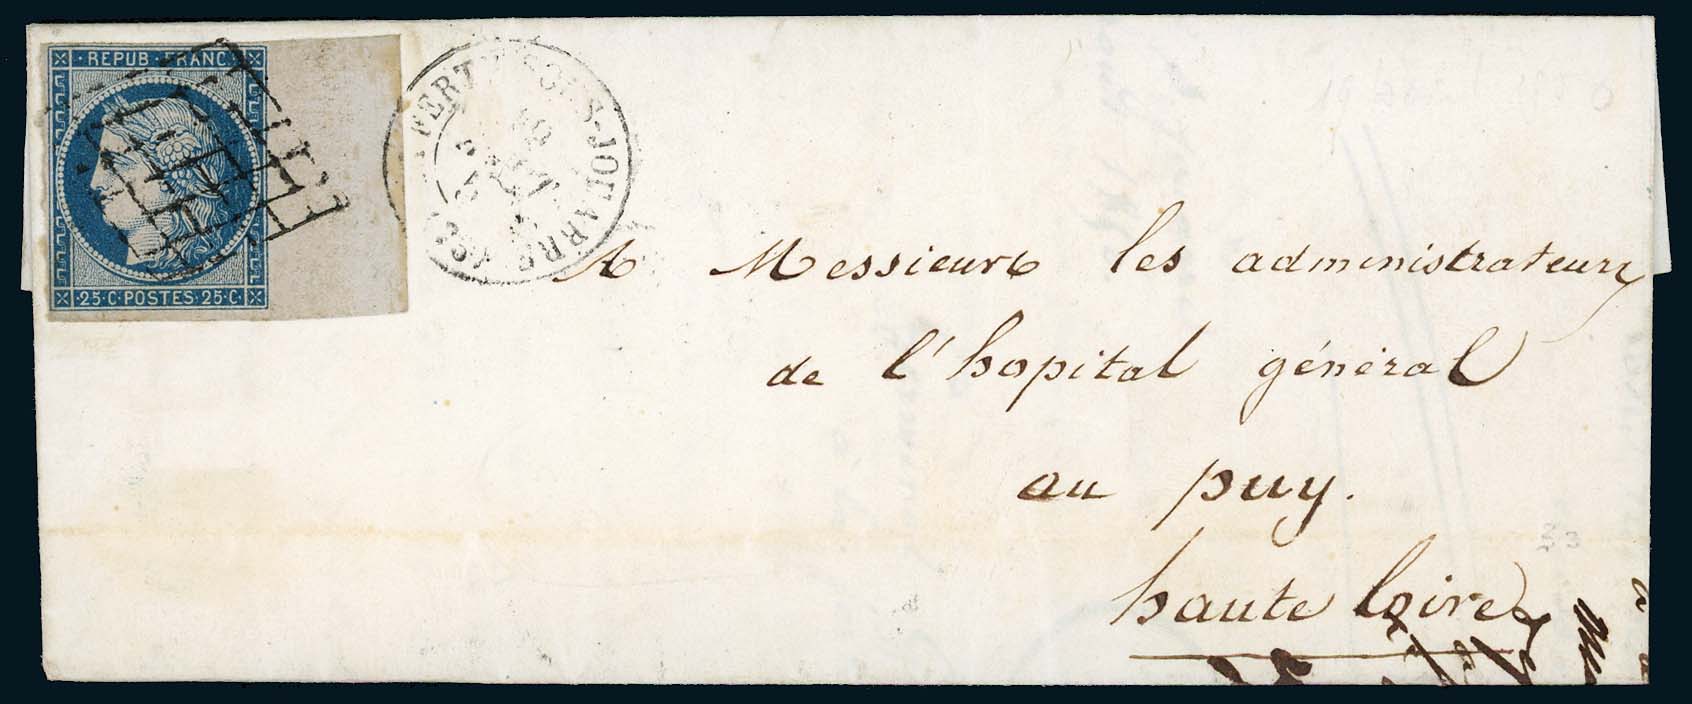 REPUB·FRANC
25·C·POSTES·25·C·
FERTE-SOUS-JOUARRE
A Messieurs les administrateurs
de l'hopital général
au puy.
haute Loire